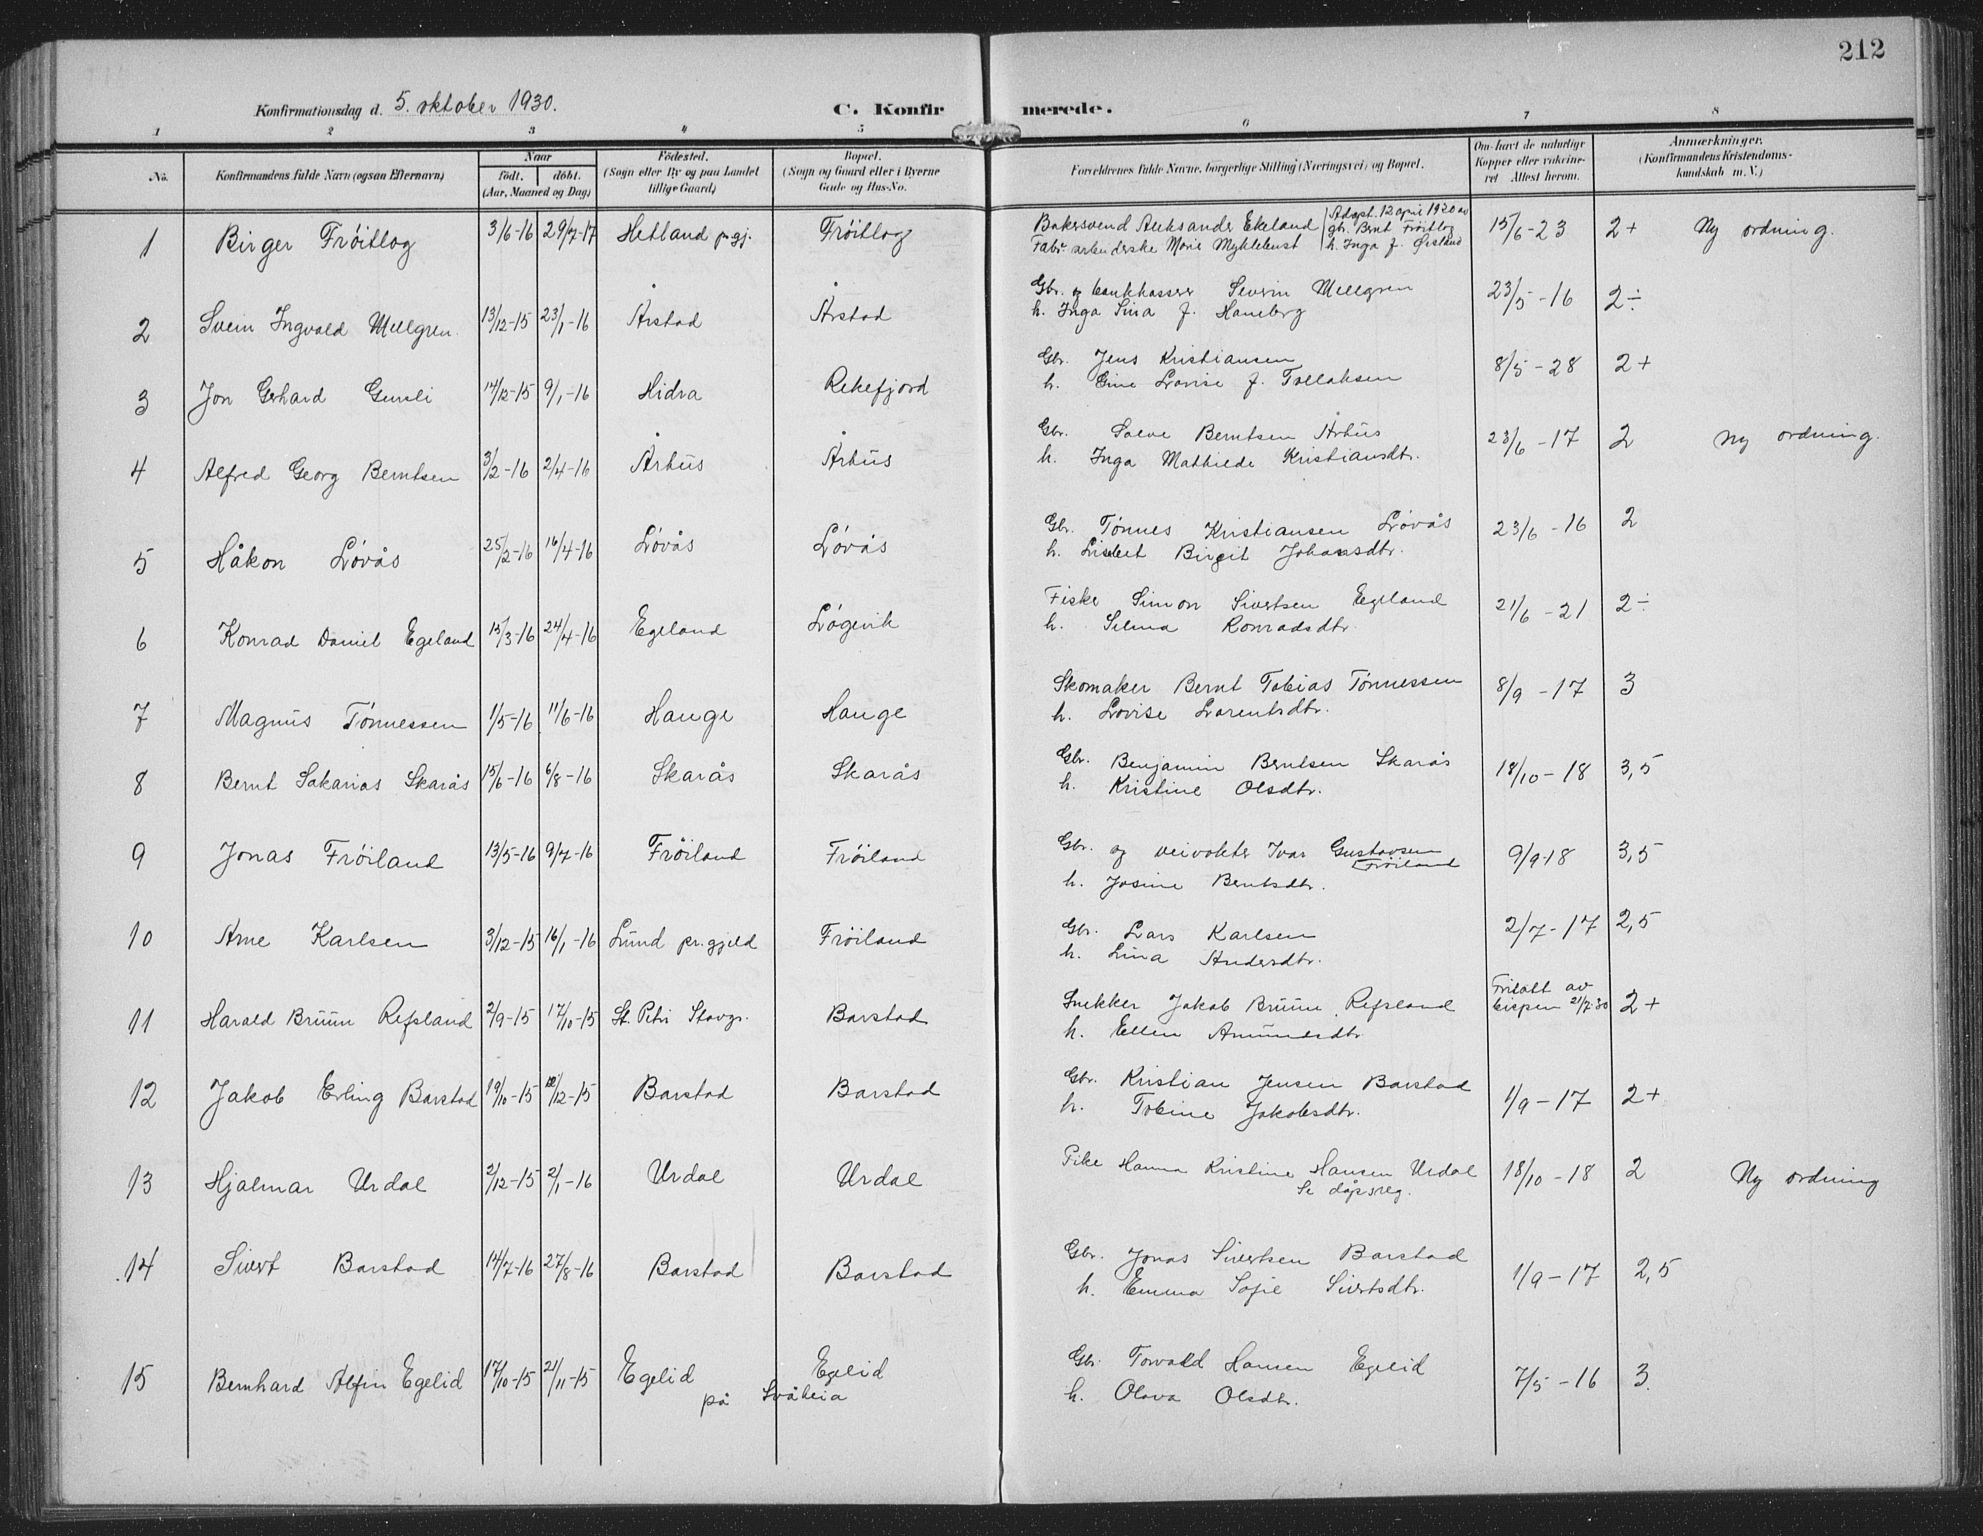 212
Konfirmationsdag d. 5. oktober 1930.
C. Konfirmerede.
1 2 3 4 5 6 7 8
No.
Konfirmandens fulde Navn (ogsaa Efternavn)
Naar
født. døbt.
(Aar, Maaned og Dag)
Fødested.
(Sogn eller By og paa Landet
tillige Gaard)
Bopæl.
(Sogn og Gaard eller i Byerne
Gade og Hus-No.
Forældrenes fulde Navne, borgerlige Stilling (Næringsvei) og Bopæl.
Om havt de naturlige
Kopper eller vakcine-
ret Attest herom.
Anmærkninger.
(Konfirmandens Kristendoms-
kundskab m. V.)
1 Birger Fröitlog 3/6-16 29/7-17 Hetland pr.gj. Fröitlog
Bakersvend Aleksander Ekeland Adopt. 12 april 1920 av
gb. Brnt Fröitlog
Fabr arbeiderske Marie Myklebust h. Inga f. Ørsland
15/6-23 2+ Ny ordning.
2 Svein Ingvald Mellgren 13/12-15 23/1-16 Årstad Årstad
Gbr. og bankkasserer Severin Mellgren
h. Inga Sina f. Haneberg
23/5-16 2÷
3 Jon Gerhard Gursli 14/12-15 9/1-16 Hidra Rekefjord
Gbr. Jens Kristiansen
h. Eine Lovise f. Tollaksen
8/5-28 2+
4 Alfred Georg Berntsen 3/2-16 2/4-16 Århus Århus
Gbr. Salve Berntsen Århus
h. Inga Mathilde Kristiansdtr.
23/6-17 2 Ny ordning.
5 Håkon Lövås 25/2-16 16/4-16 Lövås Lövås
Gbr. Tönnes Kristiansen Lövås
h. Lisbet Birgit Johansdtr.
23/6-16 2
6 Konrad Daniel Egeland 15/3-16 24/4-16 Egeland Lögevik
Fisker Simon Sivertsen Egeland
h. Selma Konradsdtr.
21/6-21 2÷
7 Magnus Tönnessen 1/5-16 11/6-16 Hauge Hauge
Skomaker Bernt Tobias Tönnessen
h. Lovise Larentsdtr.
8/9-17 3
8 Bernt Sakarias Skarås 15/6-16 6/8-16 Skarås Skarås
Gbr. Benjamin Berntsen Skarås
h. Kristine Olsdtr.
18/10-18 3,5
9 Jonas Fröiland 13/5-16 9/7-16 Fröiland Fröiland
Gbr. og veivokter Ivar Gustavsen
Fröiland
h. Josine Berntsdtr.
9/9-18 3,5
10 Arne Karlsen 3/12-15 16/1-16 Lund pr.gjeld Fröiland
Gbr. Lars Karlsen
h. Lina Andersdtr.
2/7-17 2,5
11 Harald Bruun Refsland 2/9-15 17/10-15 St. Petri Stavgr. Barstad
Snekker Jakob Bruun Refsland
h. Ellen Amundsdtr
Fritatt av
bispen 21/7-30 2+
12 Jakob Erling Barstad 19/10-15 12/12-15 Barstad Barstad
Gbr. Kristian Jensen Barstad
h. Tobine Jakobsdtr.
1/9-17 2+
13 Hjalmar Urdal 2/12-15 2/1-16 Urdal Urdal
Pike Hanna Kristine Hansen Urdal
Se dåpsreg.
18/10-18 2 Ny ordning
14 Sivert Barstad 14/7-16 27/8-16 Barstad Barstad
Gbr. Jonas Sivertsen Barstad
h. Emma Sofie Sivertsdtr.
1/9-17 2,5
15 Bernhard Alfin Egelid 17/10-15 21/11-15 Egelid Egelid
på Svåheia
Gbr. Torvald Hansen Egelid
h. Olava Olsdtr.
7/5-16 3.